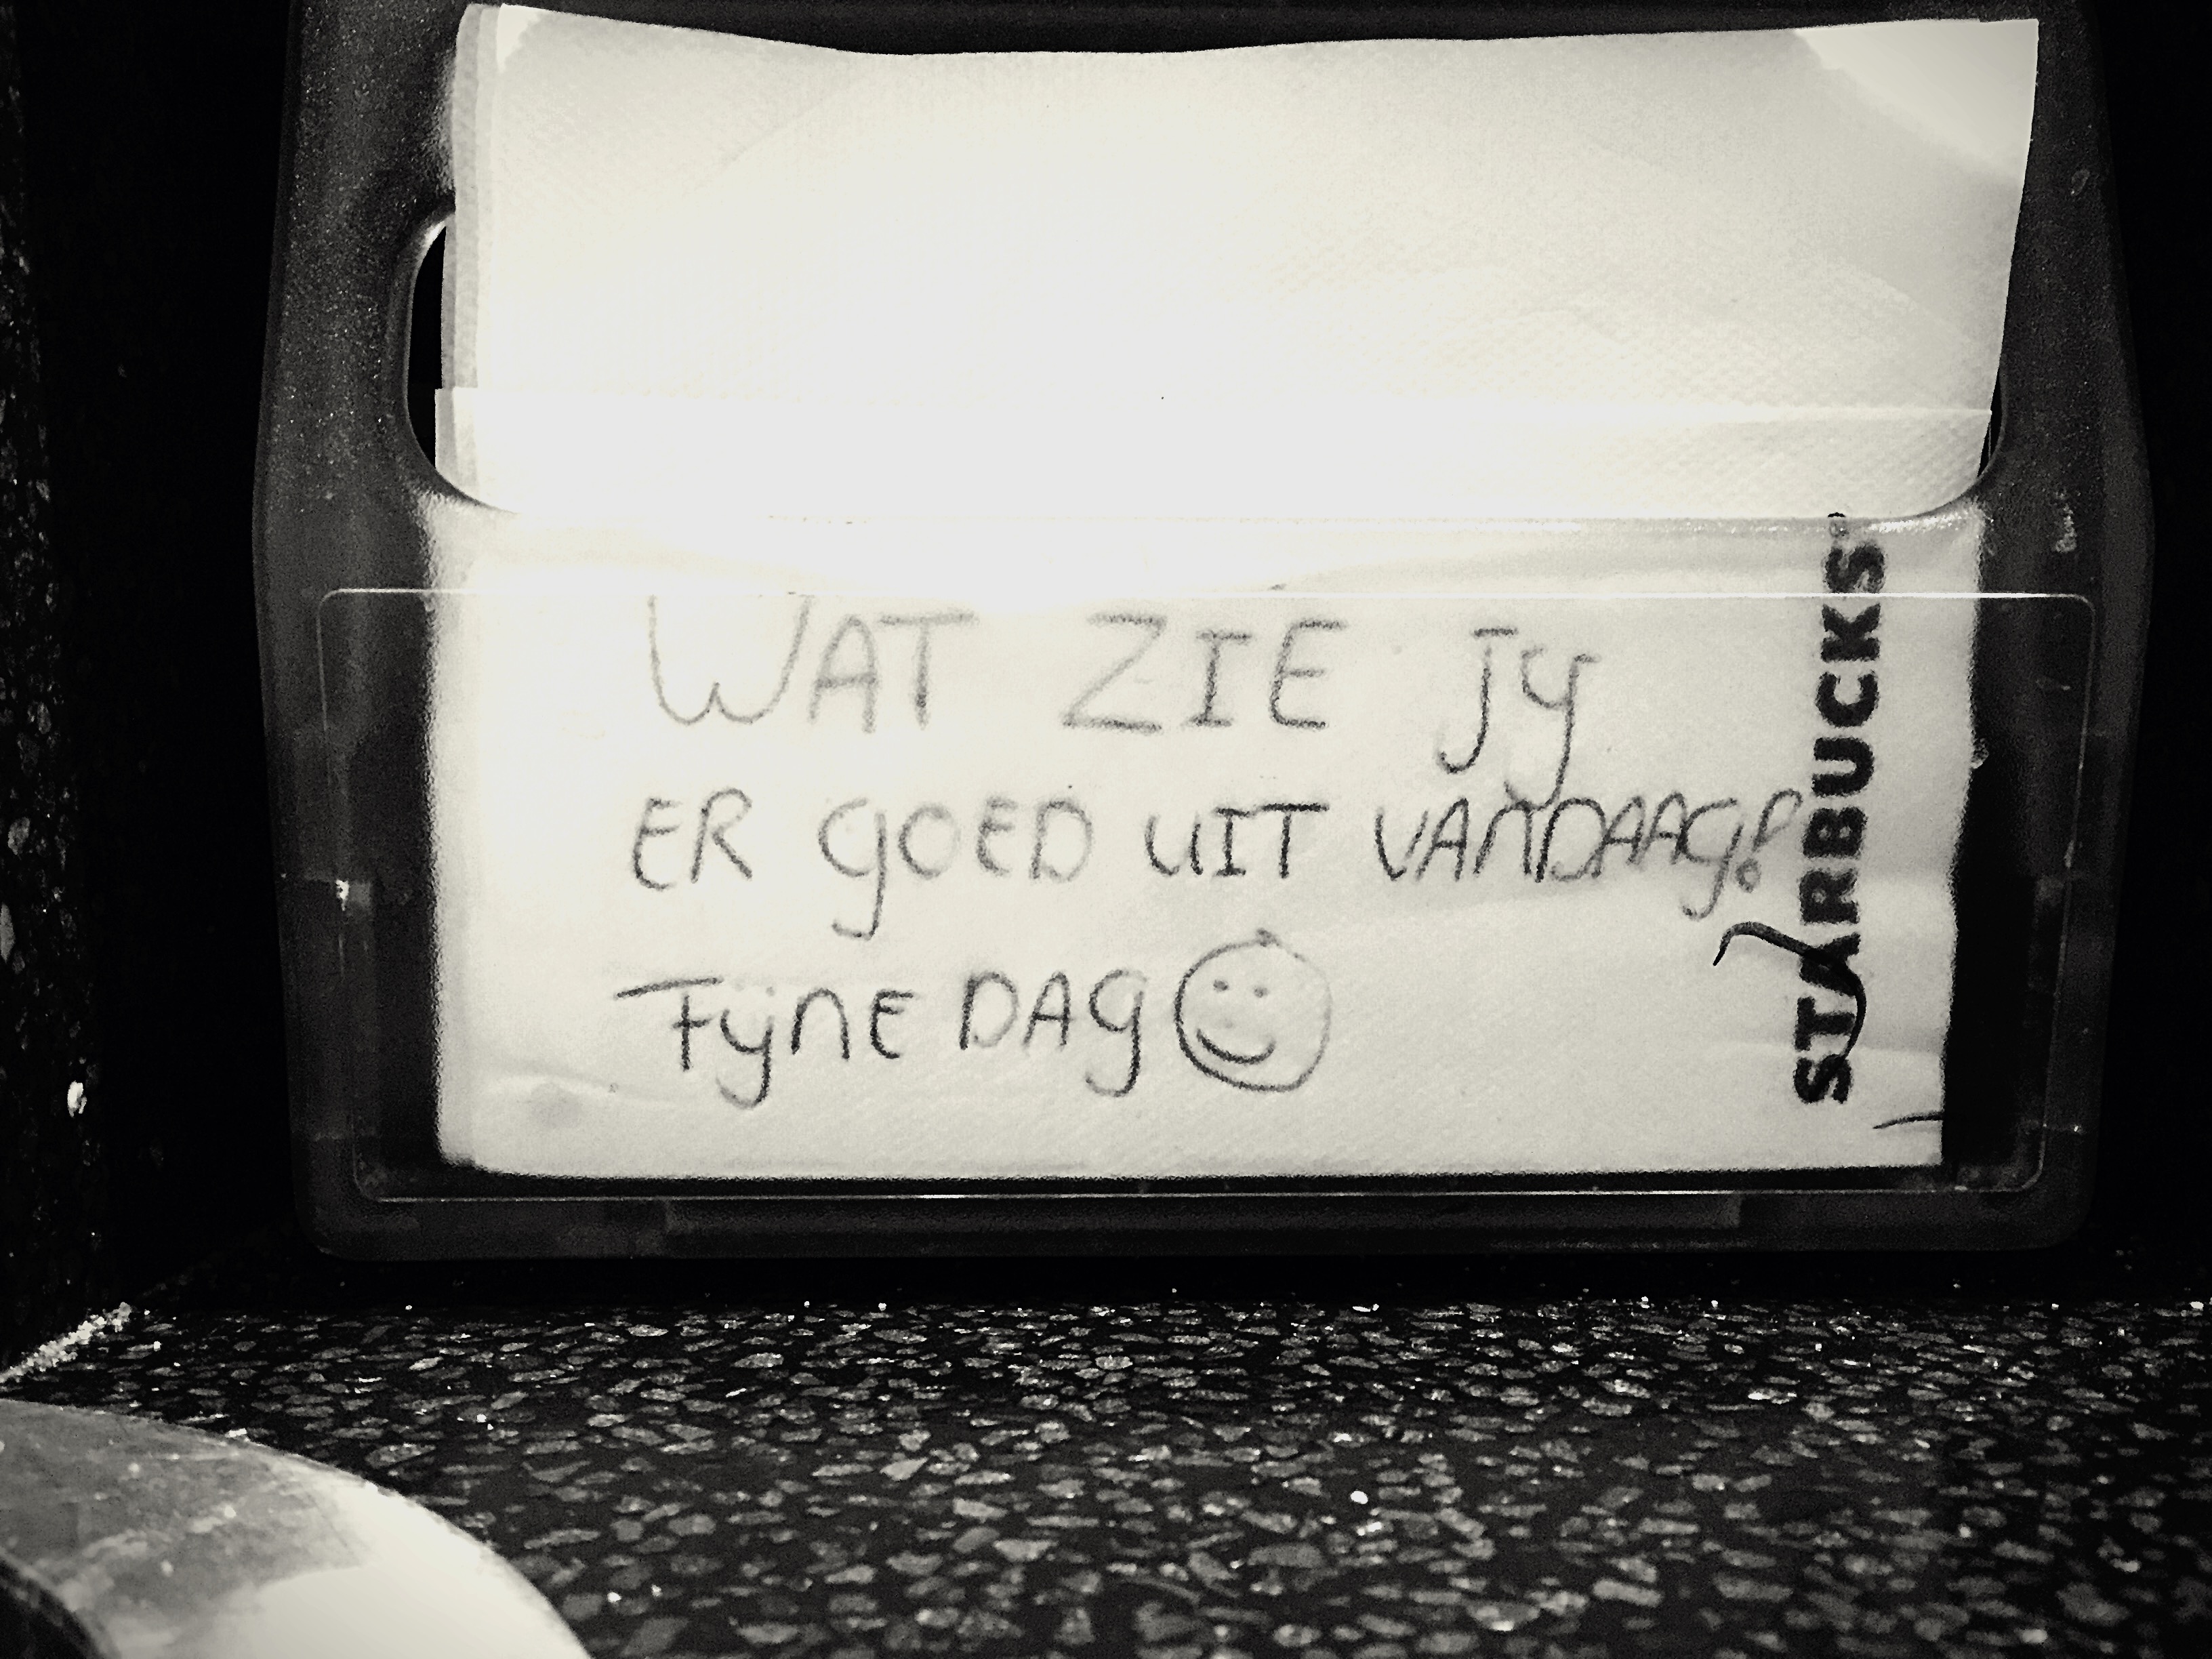 WAT ZIE Jy
ER gOED UIT VANDAAg!
FynE DAg
STARBUCKS®